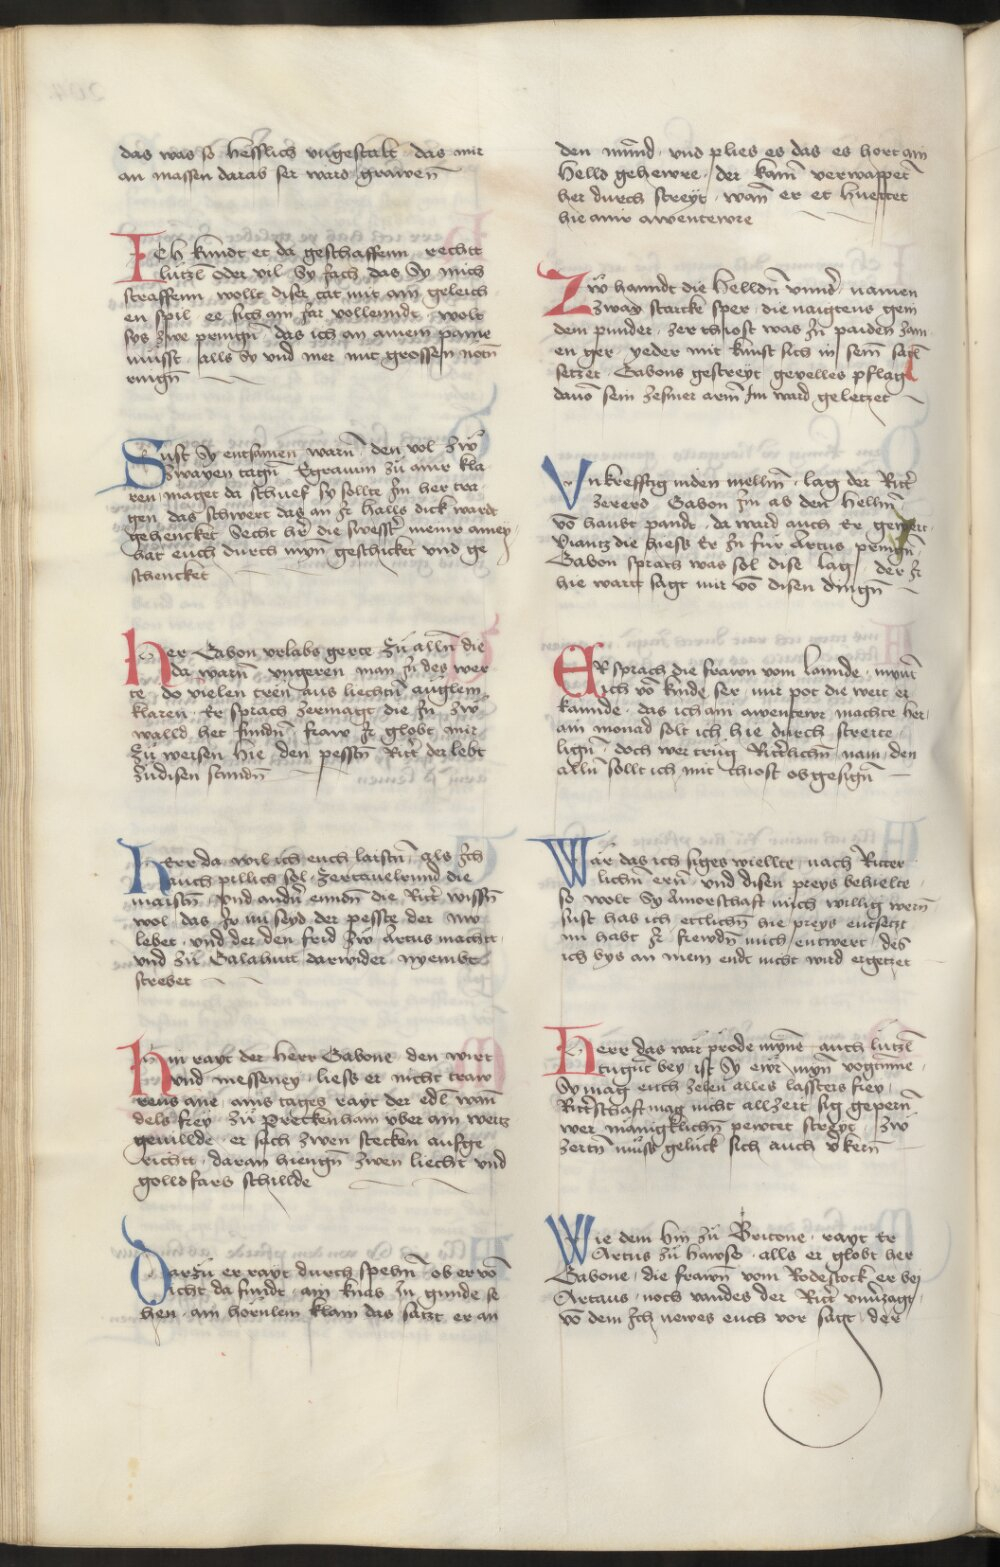 das was so hesslich vngestalt das mir
an massen darab ser ward grawen̄
Ich kundt et da geschaffenn rechtt
lützl oder vil Sy sach das Sy mich
straffenn wollt diser tat mit aim geleich
en spil ee sich ain Jar vollenndt wolt
sys zwe pringn̄ das ich an ainem pame
müsst alls Sy vnd mer mit grossen notn̄
ringn̄
Sust Sy entsamen warn̄ den vol zwͦ
zwayen tagn̄ Egraum zu ainr kla
ren maget da schuef sy sollte Jm her tra
gen das schwert das an Jr halls dick wardt
gehencket Secht her̄ die swestr̄ meinr amey
hat euch durch myn geschicket vnd ge
schencket
Her Gabon vrlabs gerte Zu alln̄ die
da warn̄ vngeren man Jn des wer
te do vielen tren aus liechtn̄ auglein
klaren Er sprach zermagt die Jn zw
walld het fundn̄ fraw Jr globt mir
Zu weisen hie den pesstn̄ Ritr̄ der lebt
Zudisen stundn̄
Herr da wil ich euch laistn̄ als Ich
auch pillich sol Zertauelrund die
maistn̄ vnd andr̄ enndn̄ die Ritr̄ wissn̄
wol das Jr nu seyd der pesste der nw
lebet vnd der den frid zw Artus machtt
vnd zu Galahutt darwider nyembt
strebet
Hin rayt der herr Gabone den wirt
vnd messeney liess er nicht traw
rens ane ains tages rayt der edl wan̄
dels frey zu Preckenham vber ain weitz
geuillde er sach zwen stecken aufge
richtt daran hiengn̄ zwen liecht vnd
golld fars schillde
Darzu er rayt durch spehn̄ ob er vo̅
icht da fundt ain knab Jn gunde se
hen ain hörnlem klam das satzt er an
den mund vnd plies es das es hort ain
Helld gehewre der kam̄ verwappet̄
her durch streyt wan̄ er et huettet
hie ainr awentewre
Zw hanndt die Helldn̄ vnnd̄ namen
zway starcke sper die naigtens gein
dem punder zer thiost was Jn̄ paiden zam
en ger yeder mit kunst sich in sein̄ satl
setzet Gabons gestreyt geuelles pflag
dauo̅ sein zesmer arm̄ Jm ward geletzet
Vnkrefftig inden mellm̄ lag der Ritr̄
zererd Gabon Jm ab den hellm̄
vo̅ haubt pandt da ward auch Er gewert
Fiantz die hiess Er Jn für Artus pringn̄
Gabon sprach was sol dise lag der Jr
hie wartt sagt mir vo̅ disen dingn̄
Er sprach die frawn vom lannde mynt̄
ich vo̅ kinde ser mir pot die wert er
kannde das ich ain awentewr machte her
ain monad solt ich hie durch streite
lign̄ doch wer trüg Ritr̄lichn̄ nam den
alln̄ sollt ich mit thiost obgesign̄
Wär das ich siges wiellte nach Ritter
lichn̄ ern̄ vnd disen preys behielte
so wolt Sy Amorschaft mich willig wern̄
sust hab ich ettlichn̄ hie preys entsetzt
nu habt Jr frewdn̄ mich entwert des
ich bys an mein endt nicht wird ergetzet
Herr das wär pröde mynē auch lützl
tugnt bey ist Sy ewr myn vogtinne
Sy mag euch zelen alles lassters frey
Ritr̄schaft mag nicht allzeit sig gepern̄
wer manigklichn̄ pewtet streyt zw
zeitn̄ müss gelück sich auch v̄kern̄
Wie dem hin zu Britone rayt Er
Artus zu hawse alls er globt her
Gabone die frawn̄ vom Rodestock er bei
Artaus noch vandes der Ritr̄ vnu̅zagt
vo̅ dem Ich newes euch vor sagt der